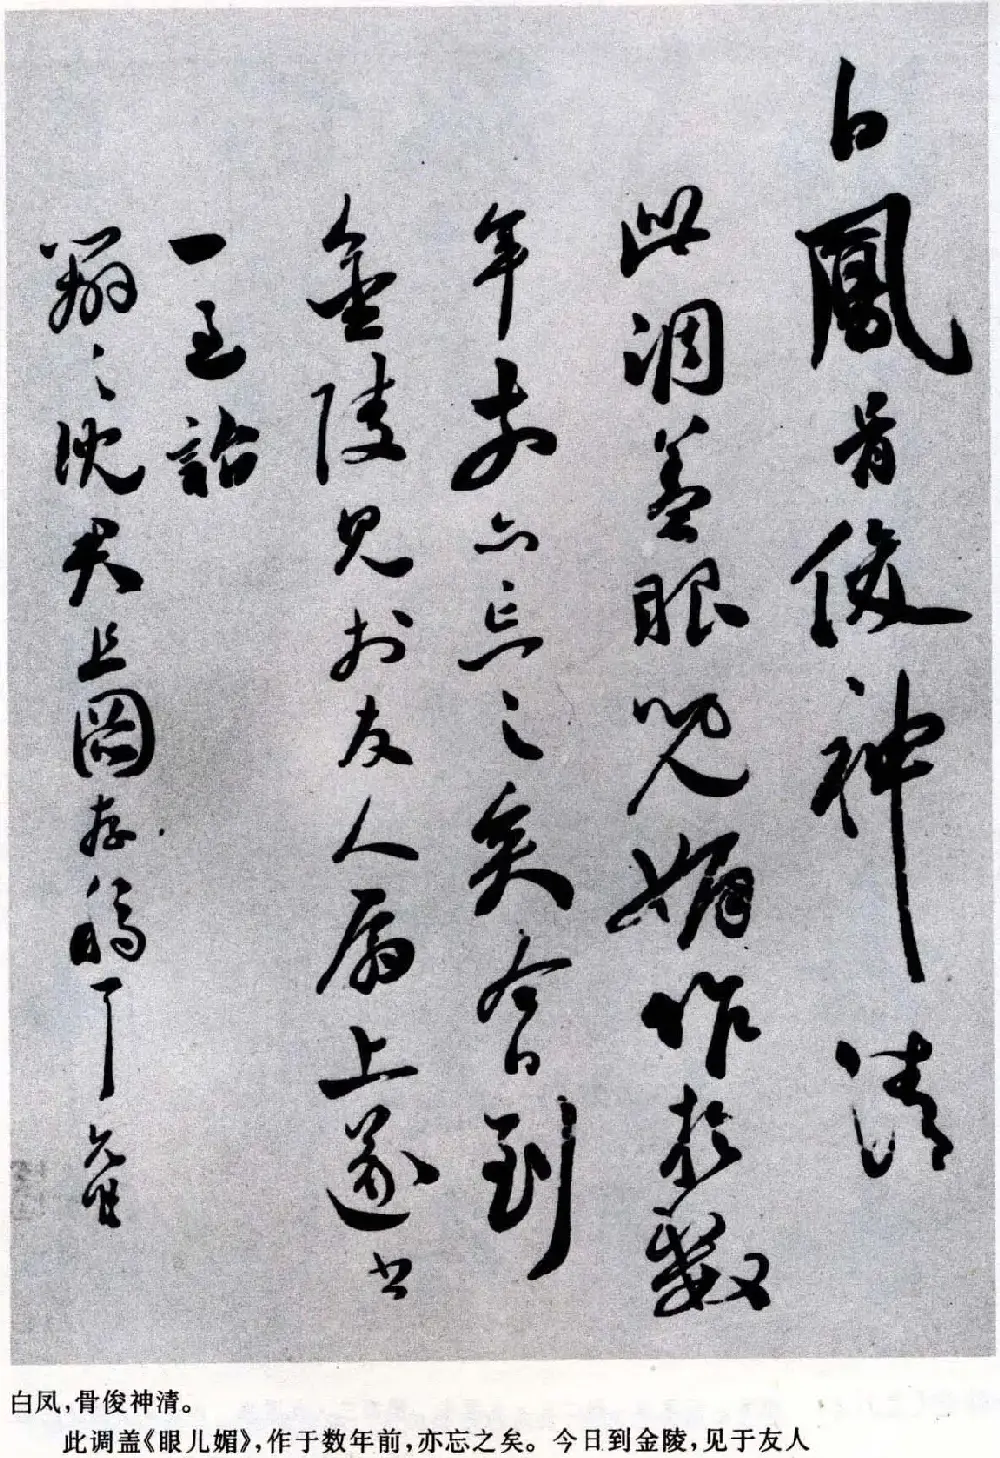 白鳳骨俊神清
此調蓋眼兒媚作於數
年前亦忘之矣今日到
金陵見於友人扇上遂書
一過詒
翔之沈君且圖存稿丁
白凤，骨俊神清。
此调盖《眼儿媚》，作于数年前，亦忘之矣。今日到金陵，见于友人